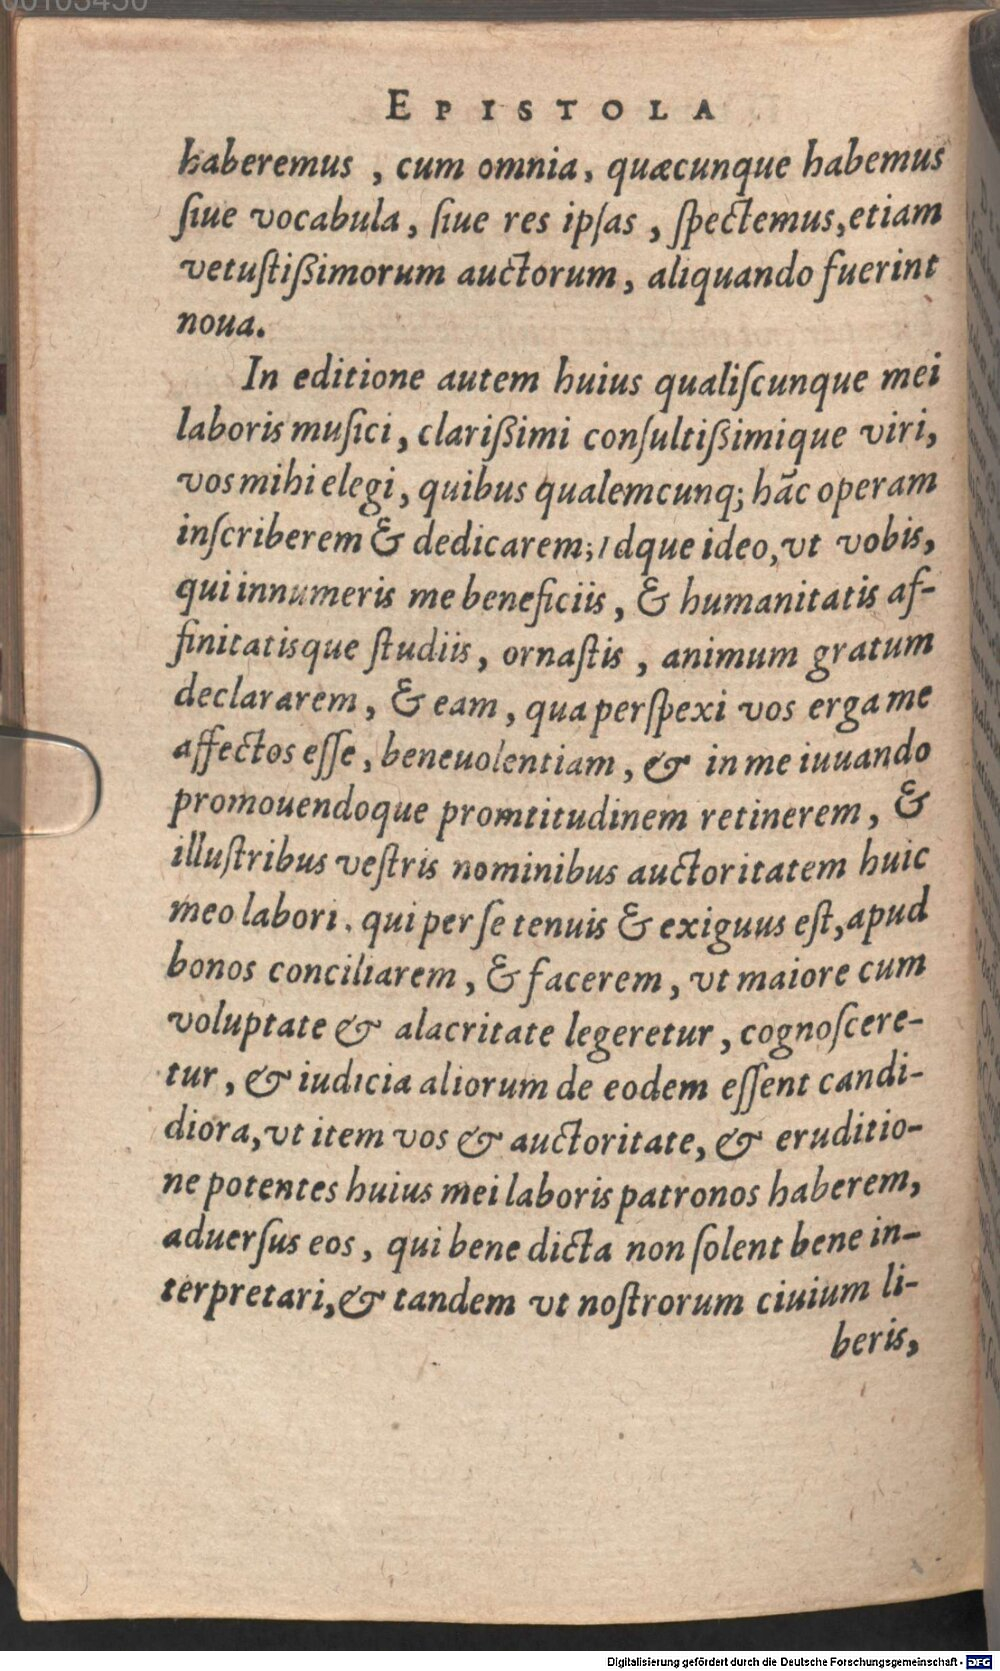 EPISTOLA
haberemus, cum omnia, quæcunque habemus
ſiue vocabula, ſiue res ipſas, ſpectemus, etiam
vetuſtißimorum auctorum, aliquando fuerint
noua.
In editione autem huius qualiſcunque mei
laboris muſici, clarißimi conſultißimique viri,
vos mihi elegi, quibus qualemcunq; hāc operam
inſcriberem & dedicarem; idque ideo, vt vobis,
qui innumeris me beneficiis, & humanitatis af-
finitatisque ſtudiis, ornaſtis, animum gratum
declararem, & eam, qua perſpexi vos erga me
affectos eſſe, beneuolentiam, & in me iuuando
promouendoque promtitudinem retinerem, &
illuſtribus veſtris nominibus auctoritatem huic
meo labori, qui per ſe tenuis & exiguus eſt, apud
bonos conciliarem, & facerem, vt maiore cum
voluptate & alacritate legeretur, cognoſcere-
tur, & iudicia aliorum de eodem eſſent candi-
diora, vt item vos & auctoritate, & eruditio-
ne potentes huius mei laboris patronos haberem,
aduerſus eos, qui bene dicta non ſolent bene in-
terpretari, & tandem vt noſtrorum ciuium li-
beris,
Digitalisierung gefördert durch die Deutsche Forschungsgemeinschaft - DFG